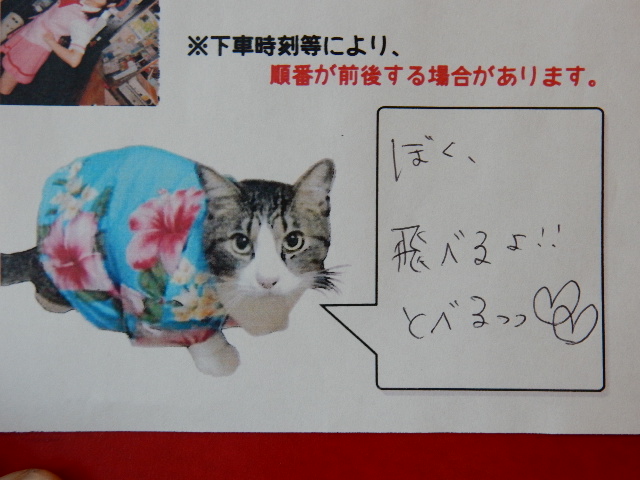 ※下車時刻等により、
順番が前後する場合があります。
ぼく、
飛べるよ!!
とべるっっ